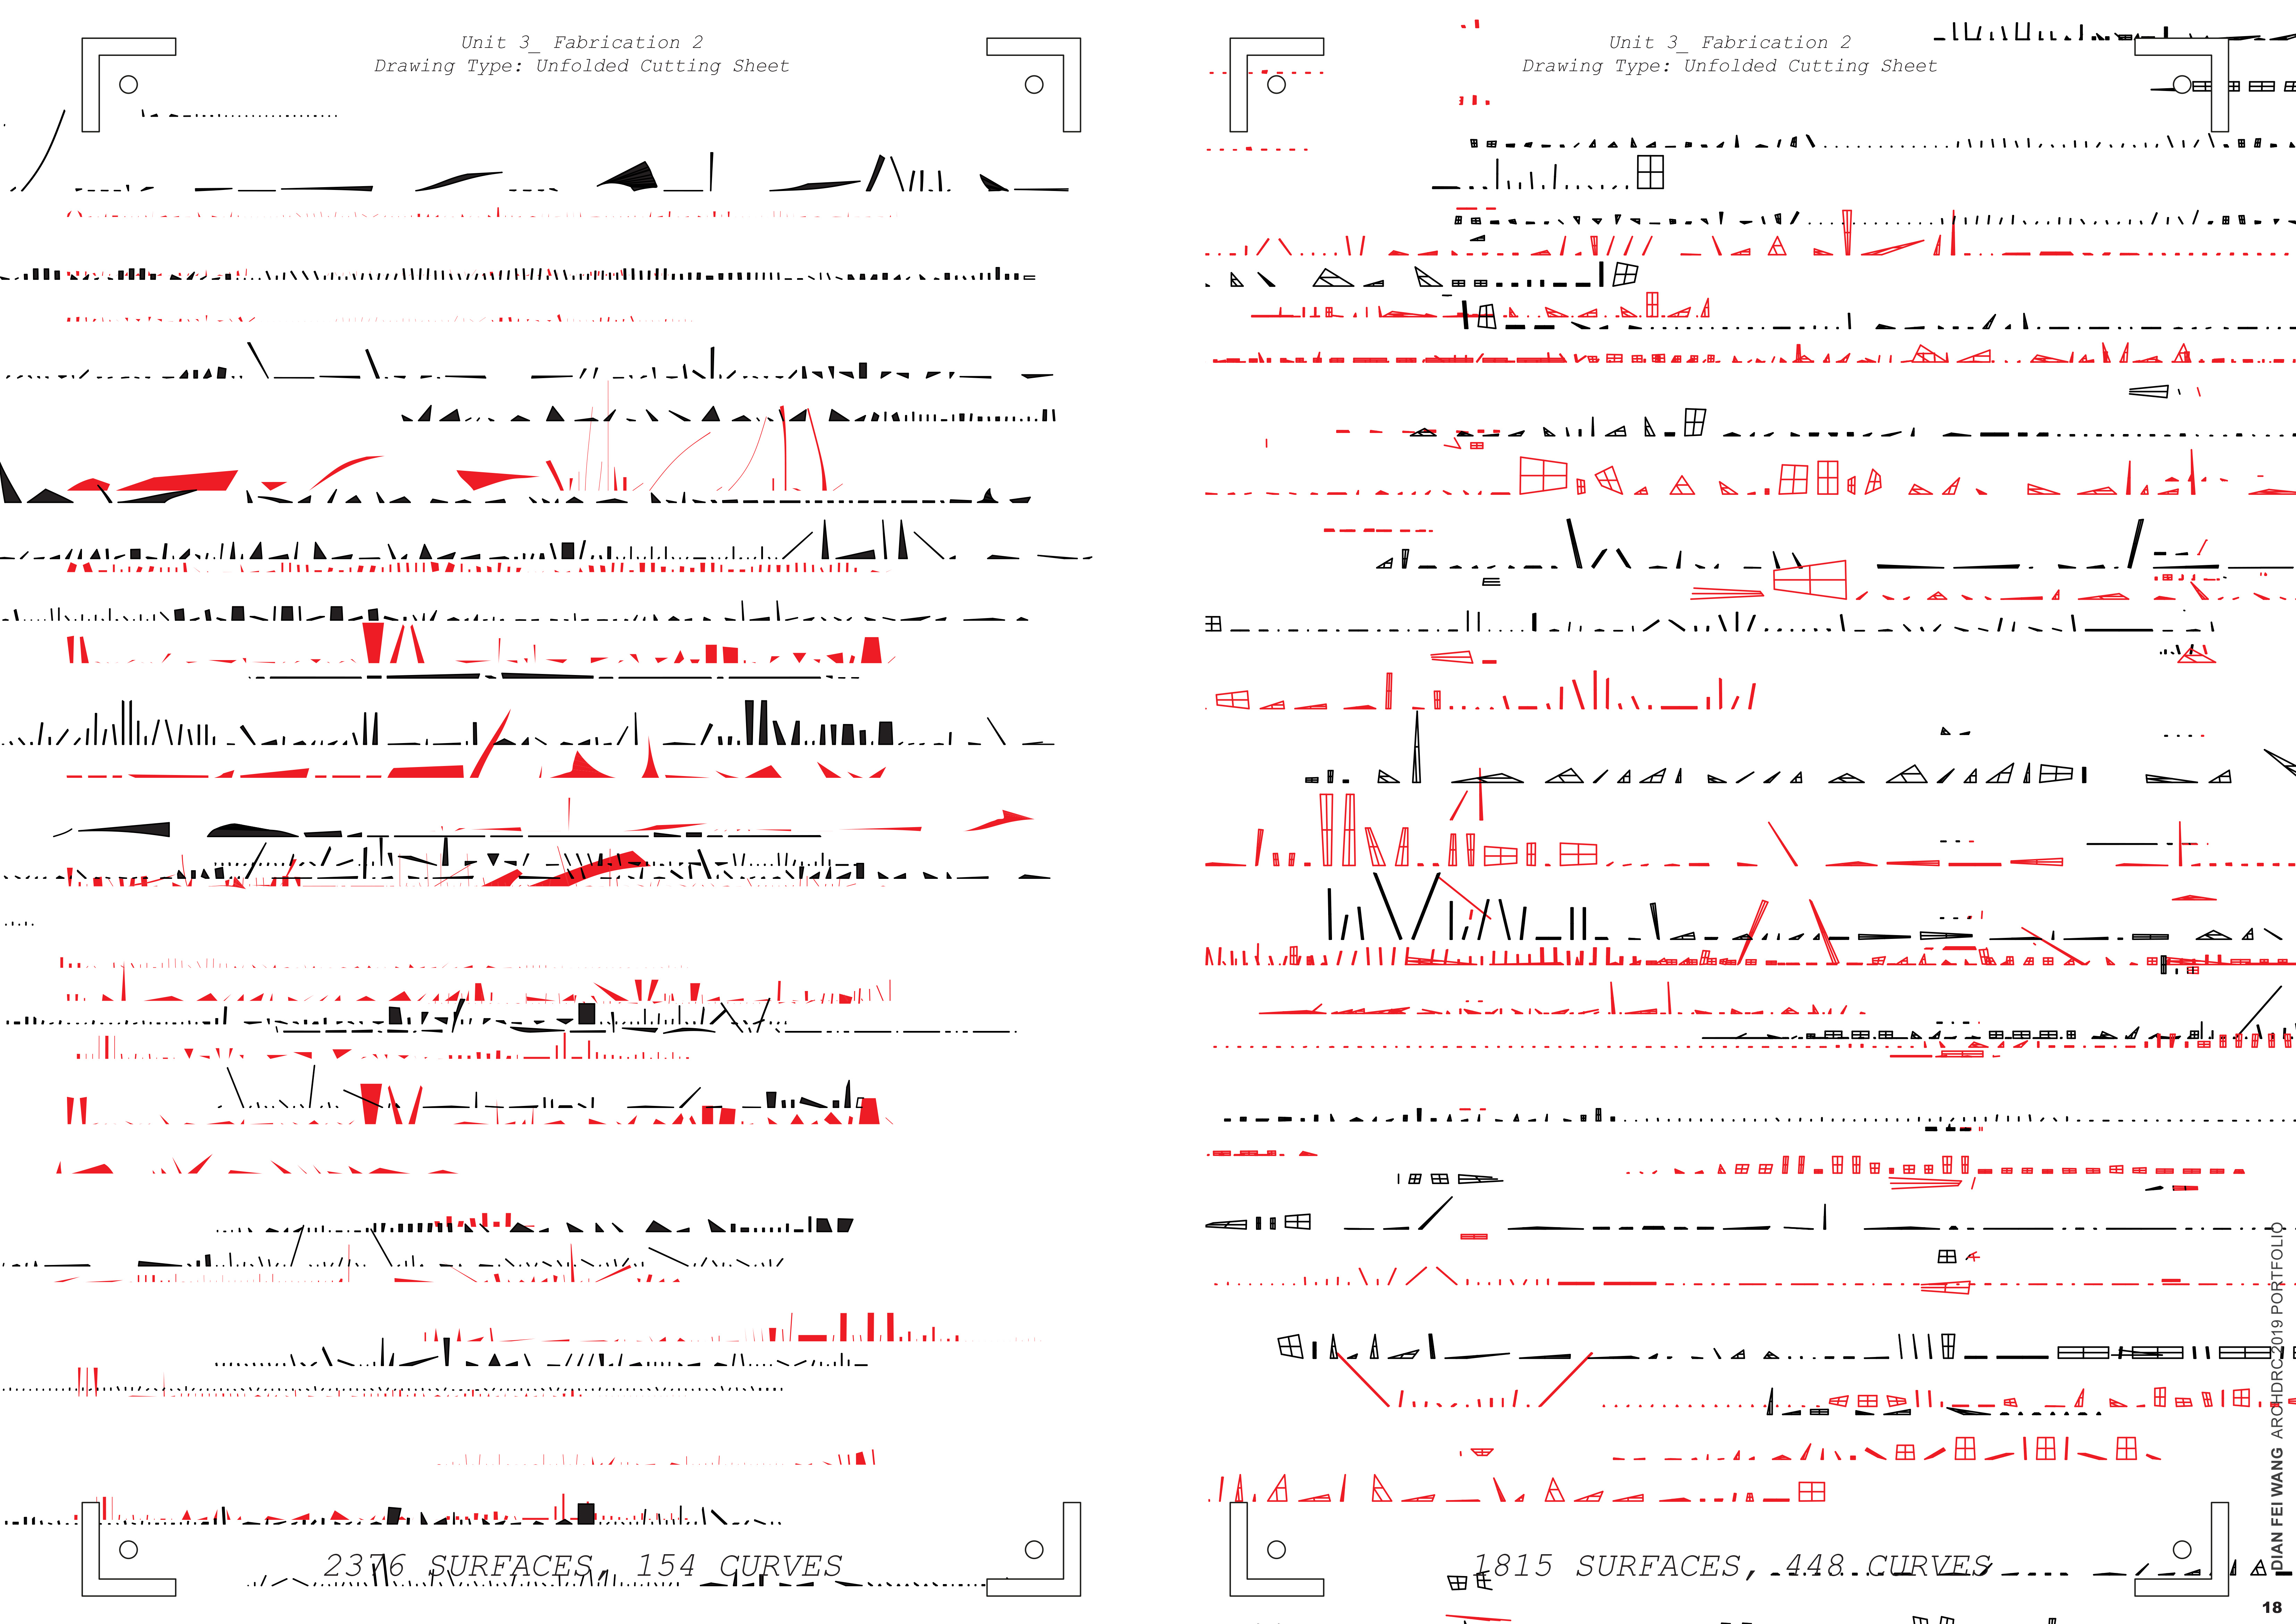 Unit 3_ Fabrication 2
Drawing Type: Unfolded Cutting Sheet
2376 SURFACES, 154 CURVES
Unit 3_ Fabrication 2
Drawing Type: Unfolded Cutting Sheet
1815 SURFACES, 448 CURVES
DIAN FEI WANG ARCHDRC 2019 PORTFOLIO
18